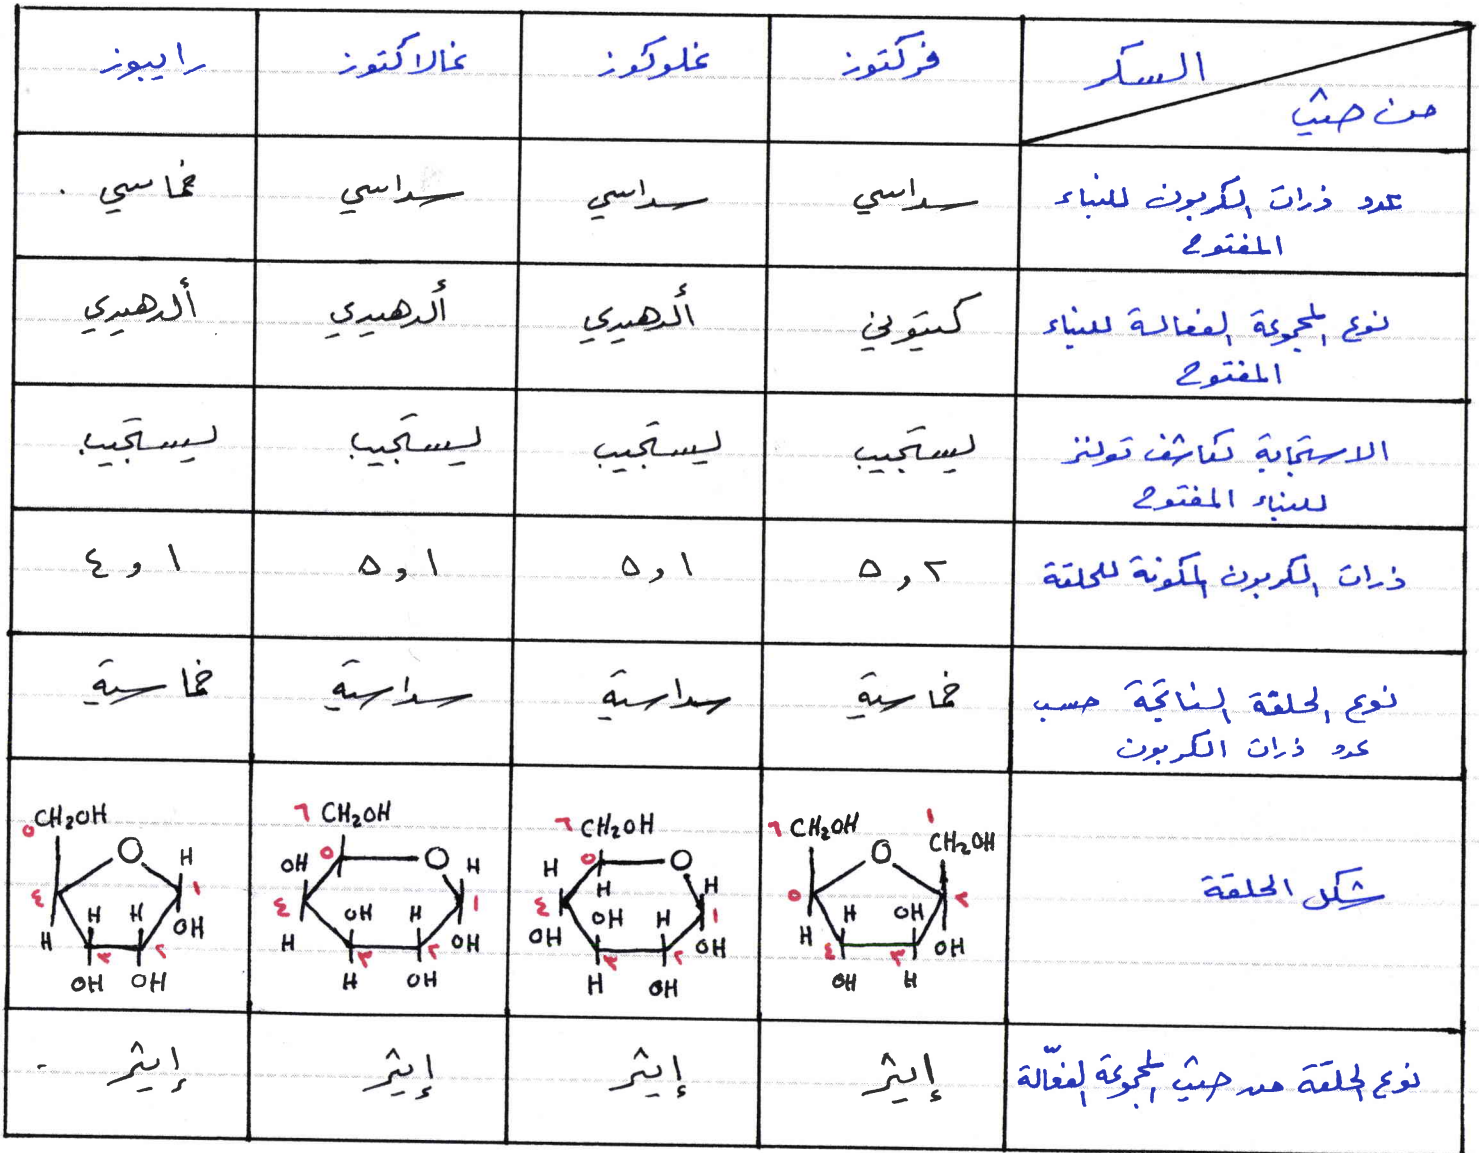 السكر
من حيث
فركتوز
غلوكوز
غالاكتوز
رايبوز
عدد ذرات الكربون للبناء
المفتوح
سداسي
سداسي
سداسي
خماسي .
نوع المجموعة الفعالة للبناء
المفتوح
كيتوني
ألدهيدي
ألدهيدي
ألدهيدي
الاستجابة لكاشف تولنز
للبناء المفتوح
يستجيب
يستجيب
يستجيب
يستجيب
ذرات الكربون المكونة للحلقة
٢ و ٥
١ و ٥
١ و ٥
١ و ٤
نوع الحلقة الناتجة حسب
عدد ذرات الكربون
خماسية
سداسية
سداسية
خماسية
شكل الحلقة
٦ CH₂OH ١
O CH₂OH
٥ ٢
H OH
H ٤ ٣ OH
OH H
٦ CH₂OH
٥ O
H H H
٤ OH H ١
OH ٣ ٢ OH
H OH
٦ CH₂OH
OH ٥ O H
٤ OH H ١
H ٣ ٢ OH
H OH
٥ CH₂OH
O H
٤ ١
H H OH
H ٣ ٢
OH OH
نوع الحلقة من حيث المجموعة الفعّالة
إيثر
إيثر
إيثر
إيثر